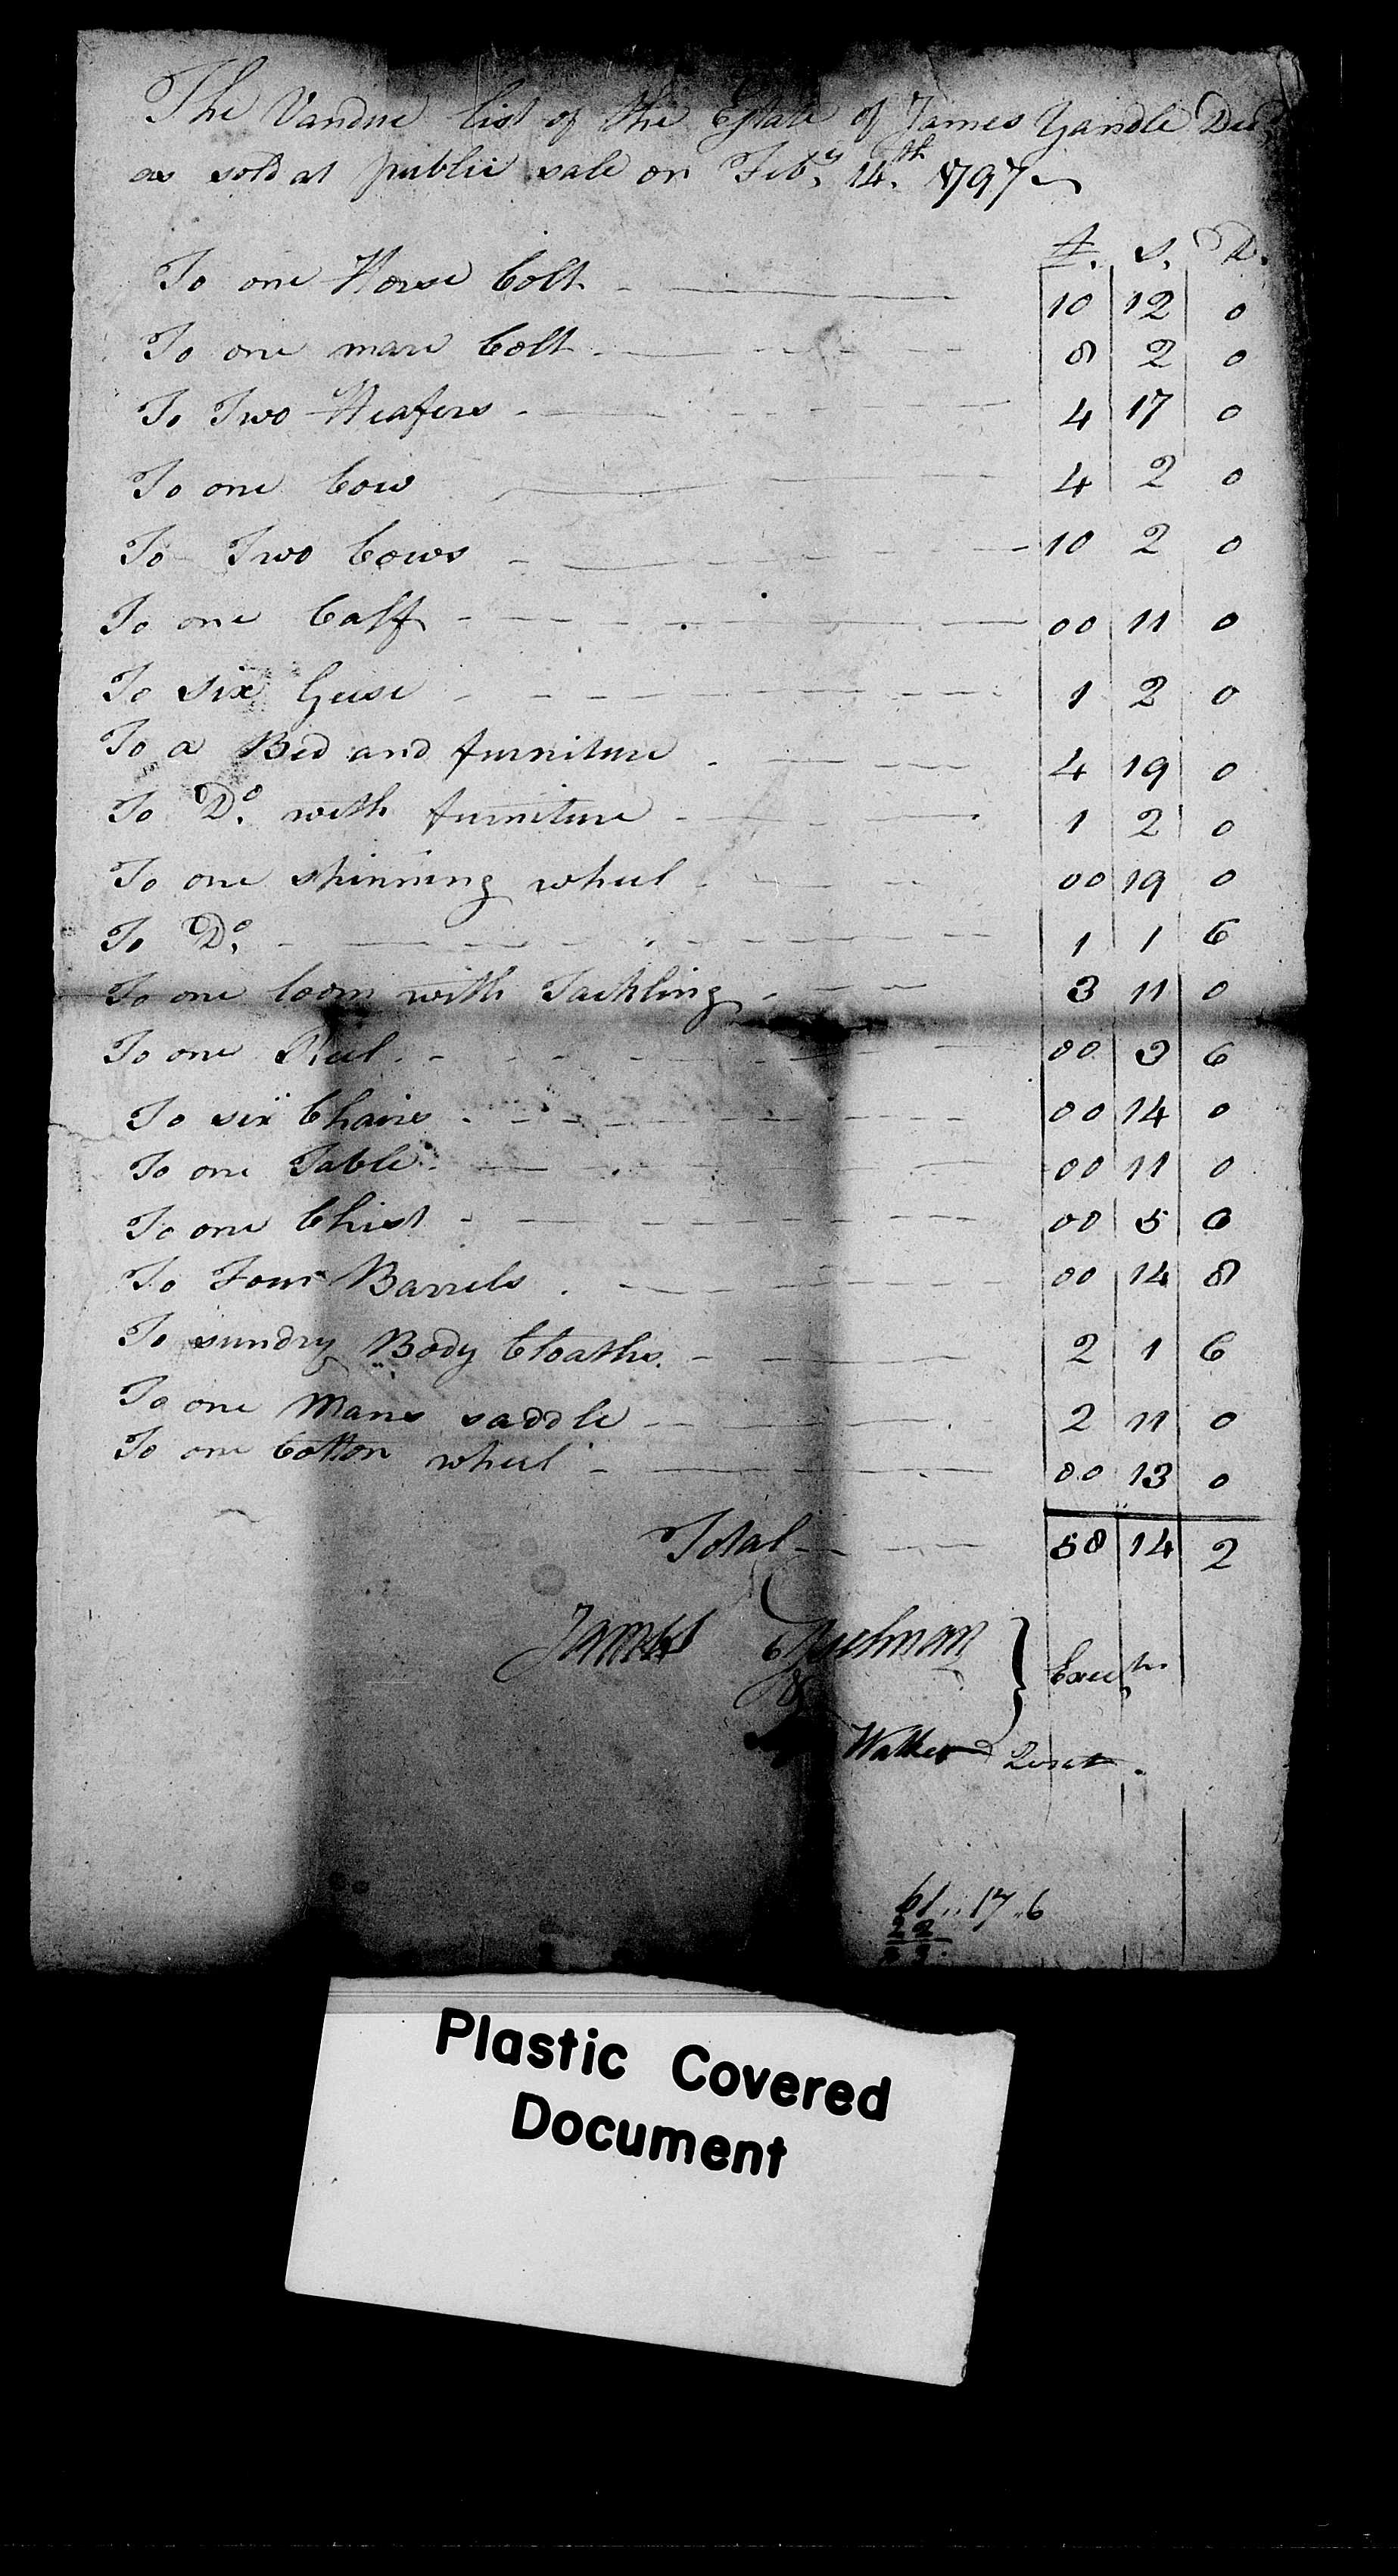 The Vandue list of the Estate of James Yandle Decd
as sold at public sale on Feby. 14th. 1797
£. S. D.
To one Horse Colt 10 12 0
To one mare Colt 8 2 0
To Two Heafers 4 17 0
To one Cow 4 2 0
To Two Cows 10 2 0
To one Calf 00 11 0
To six Geese 1 2 0
To a Bed and furniture 4 19 0
To Do. with furniture 1 2 0
To one spinning wheel 00 19 0
To Do. 1 1 6
To one loom with Tackling 3 11 0
To one Reel 00 3 6
To six Chairs 00 14 0
To one Table 00 11 0
To one Chist 00 5 0
To Four Barrels 00 14 8
To sundry Body Cloaths 2 1 6
To one Mans saddle 2 11 0
To one Cotton wheel 00 13 0
Total 58 14 2
James
&
Walker
61..17..6
22
Plastic Covered
Document